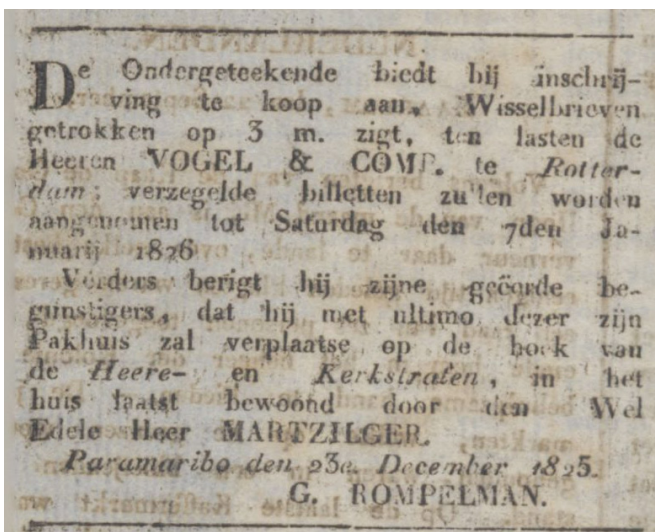 De Ondergeteekende biedt bij inschrij-
ving te koop aan, Wisselbrieven
getrokken op 3 m. zigt, ten lasten de
Heeren VOGEL & COMP. te Rotter-
dam; verzegelde billetten zullen worden
aangenomen tot Saturdag den 7den Ja-
nuarij 1826
Verders berigt hij zijne geëerde be-
gunstigers, dat hij met ultimo dezer zijn
Pakhuis zal verplaatse op de hoek van
de Heere- en Kerkstraten, in het
huis laatst bewoond door den Wel
Edele Heer MARTZILGER.
Paramaribo den 23e. December 1825.
G. ROMPELMAN.